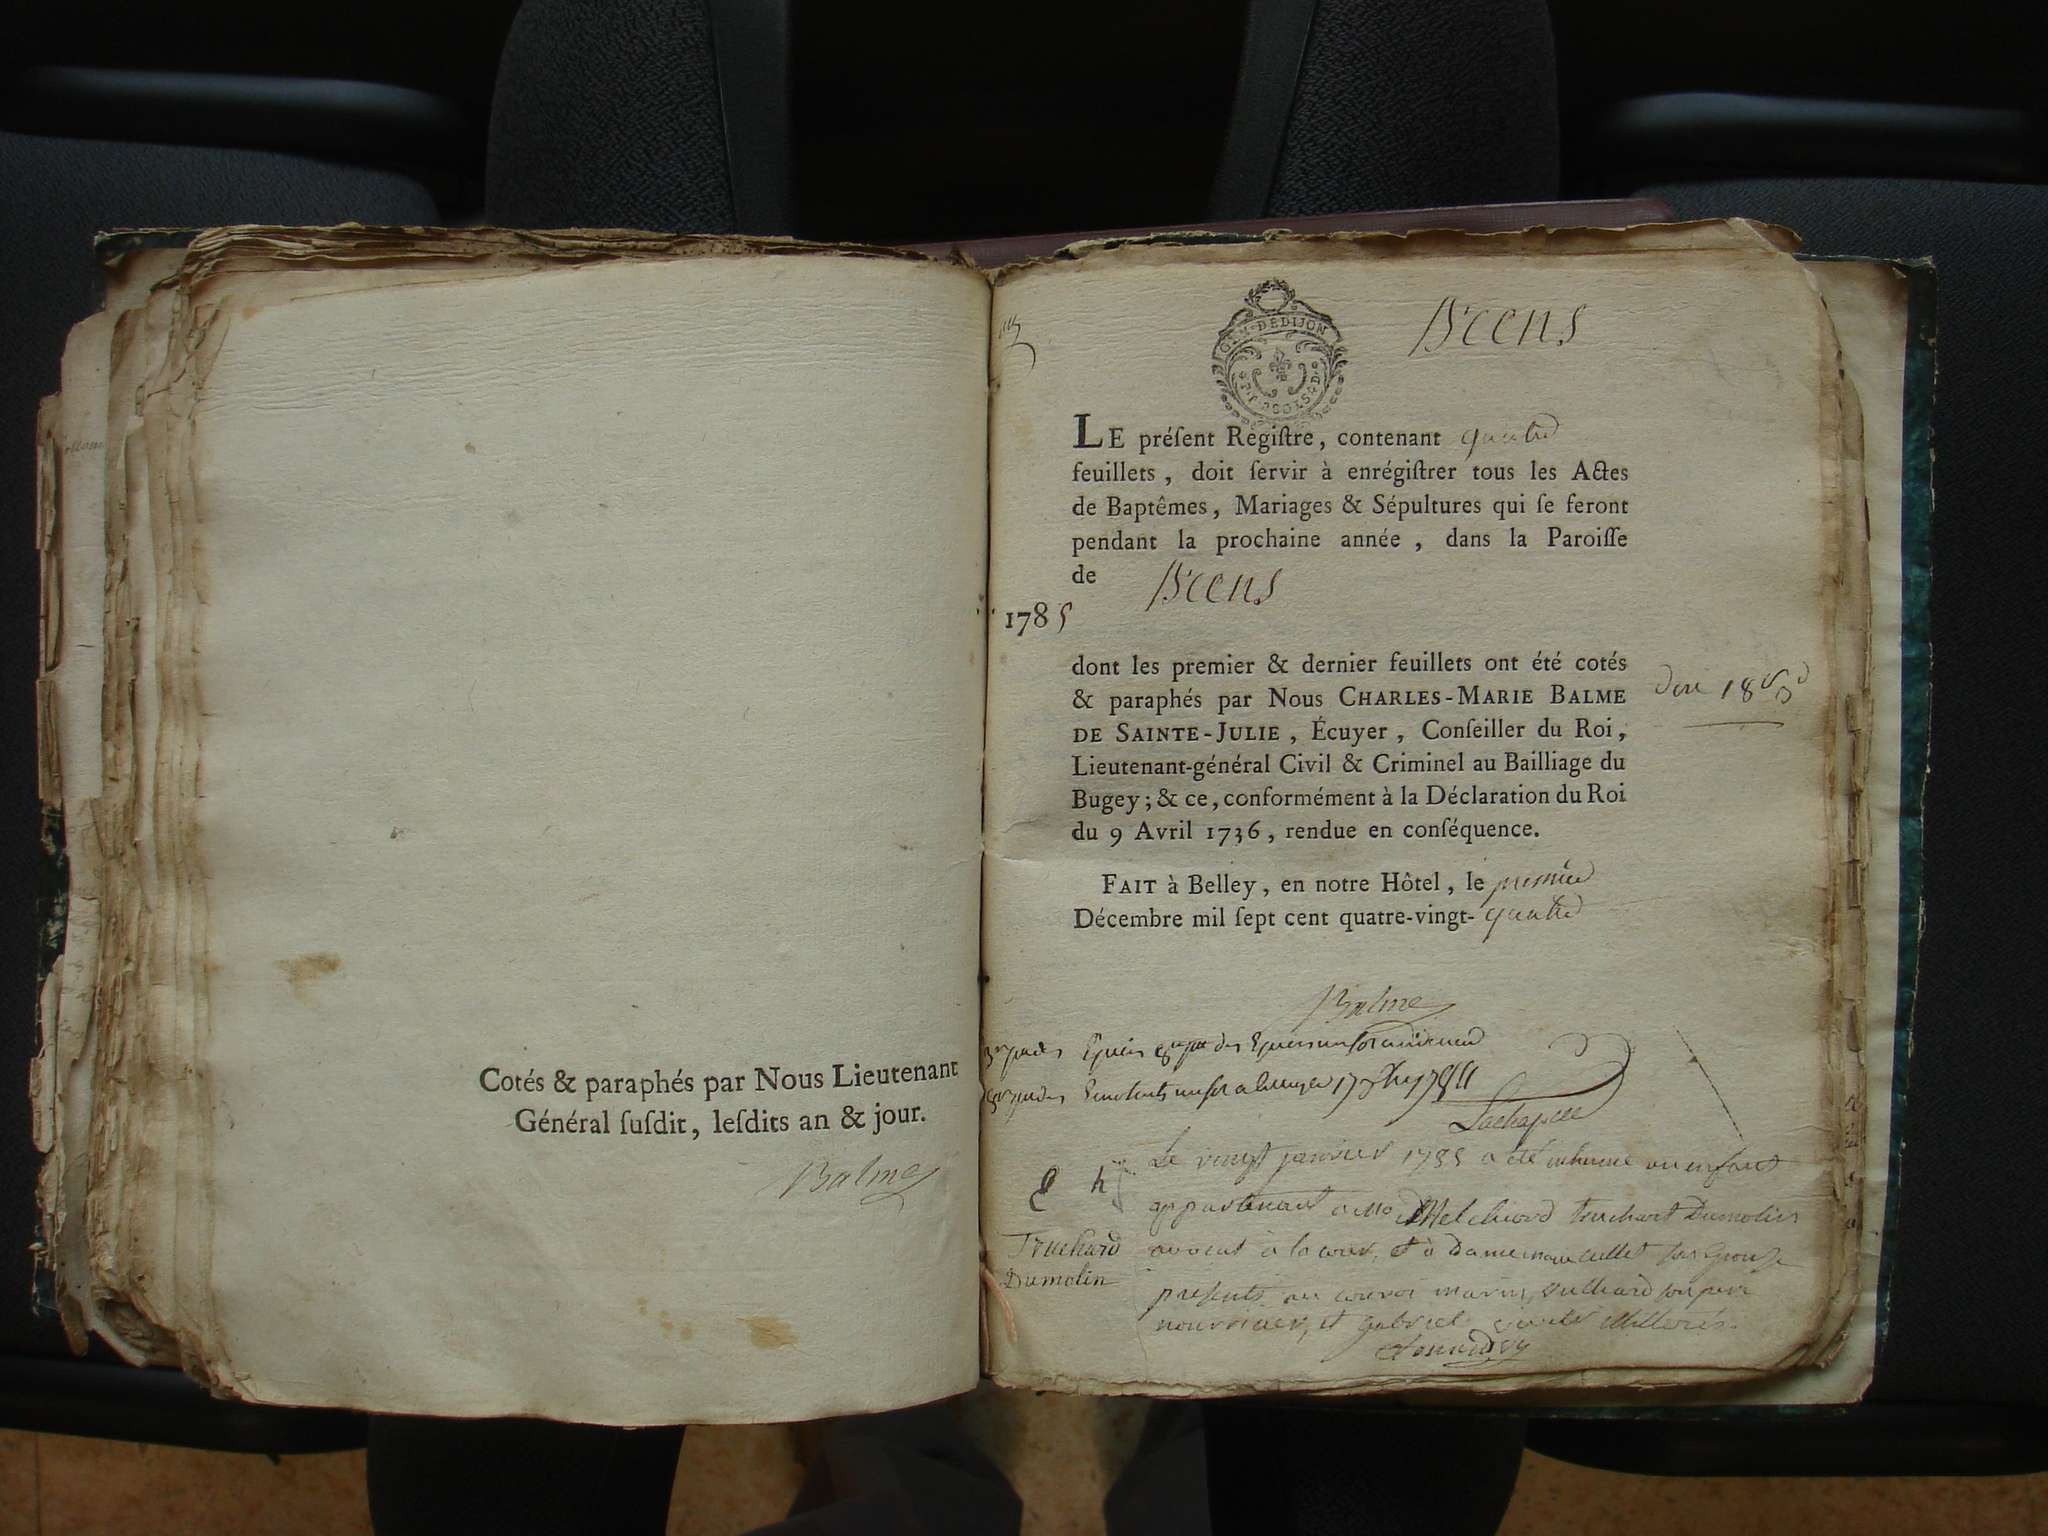 Cotés & paraphés par Nous Lieutenant
Général ſuſdit, leſdits an & jour.
Balme
GEN. DE DIJON
Brens
LE préſent Regiſtre, contenant quatre
feuillets, doit ſervir à enrégiſtrer tous les Actes
de Baptêmes, Mariages & Sépultures qui ſe feront
pendant la prochaine année, dans la Paroiſſe
de Brens
1785
dont les premier & dernier feuillets ont été cotés
& paraphés par Nous CHARLES-MARIE BALME
DE SAINTE-JULIE, Écuyer, Conſeiller du Roi,
Lieutenant-général Civil & Criminel au Bailliage du
Bugey; & ce, conformément à la Déclaration du Roi
du 9 Avril 1736, rendue en conſéquence.
FAIT à Belley, en notre Hôtel, le premier
Décembre mil ſept cent quatre-vingt-quatre
Balme
Lachapelle
Truchard
Dumolin
Le vingt janvier 1785 a été inhumé un enfant
appartenant a Melchiord truchart Dumolin
avocat à la cour, et à Dame son epouse
presents au convoi marin son pere
nourricier, et gabriel